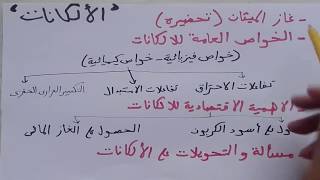 "الألكانات"
- غاز الميثان (تحضيره)
- الخواص العامة للألكانات
(خواص فيزيائية - خواص كيميائية)
تفاعلات الاحتراق تفاعلات الاستبدال التكسير الحرارى الحفزى
الأهمية الاقتصادية للألكانات
على أسود الكربون الحصول على الغاز المائى
- مسألة والتحويلات على الألكانات